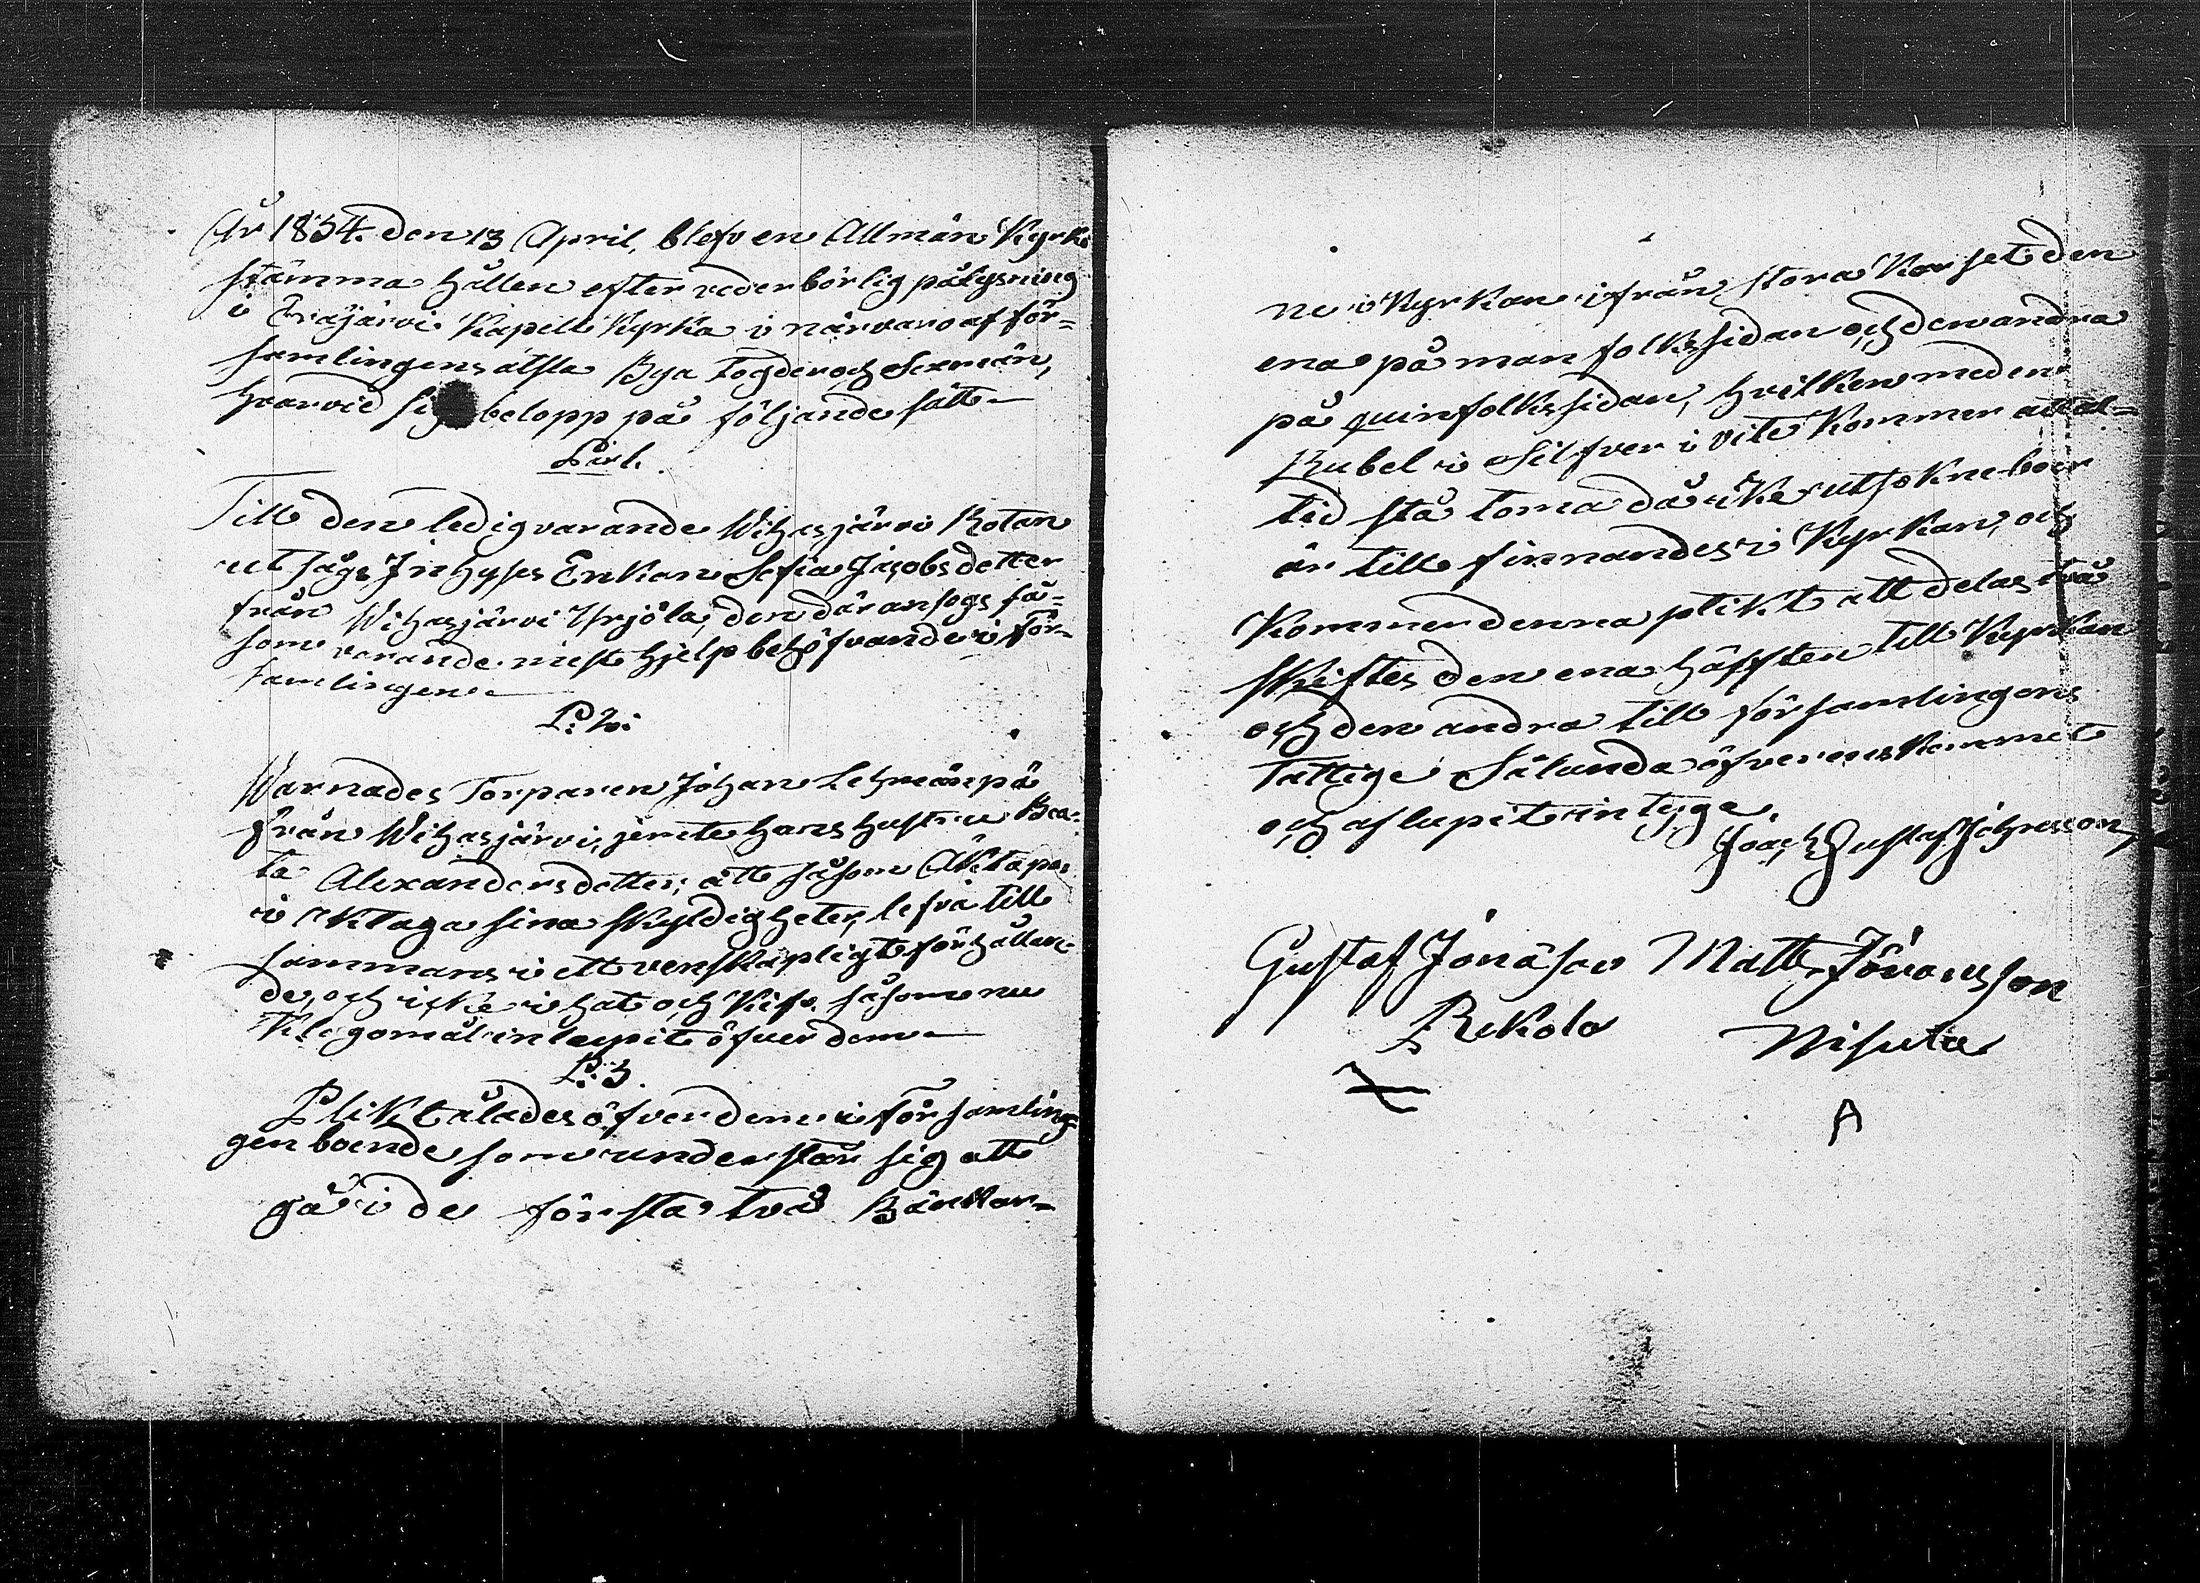 År 1834. den 13 April, blefv en Allmän Kyrko
stämma hållen efter vederbörlig pålysning
i Eräjärvi Kapell Kyrka i närvaro af för=
samlingens älsta Bya fogder och Sexmän,
hvarvid sig belopp på följande sätt
P: 1.
Till den ledigvarande Wihasjärvi Rotan
utsågs Inhyses Enkan Sofia Jacobsdotter
från Wihasjärvi Yrjölä; den där ansogs få=
som varande mest hjelp behöfvande i för=
samlingen.
P: 2:
Warnades Torparen Johan Lehmänpä
från Wihasjärvi, jemte hans hustru Bea=
ta Alexandersdotter; att såsom Äktapar
i ktaga sina skyldigheter, lefva till
sammans i ett venskapligt förhållan=
de, och icke i hat och Kif, såsom nu
Klagomål inlupit öfver dem
P: 3.
Plikt ålades öfver dem i församling=
gen boende som understår sig att
gå i de första två Bänkar=
ne i Kyrkan ifrån stora Korset den
ena på manfolkssidan och den andra
på quinfolkssidan, hvilken med en
Rubel i Silfver i vite Kommer all=
tid stå toma då icke utsokne boer
är till finnandes i Kyrkan, och
Kommer denna plikt att delas två
skiftes den ena häfften till Kyrkan
och den andra till församlingens
fattige Sålunda öfverenskommet
och aflupit intyga,
Joach Gustaf Johnsson
Gustaf Jonäson Matts Jöransson
Rekola Nisula
A